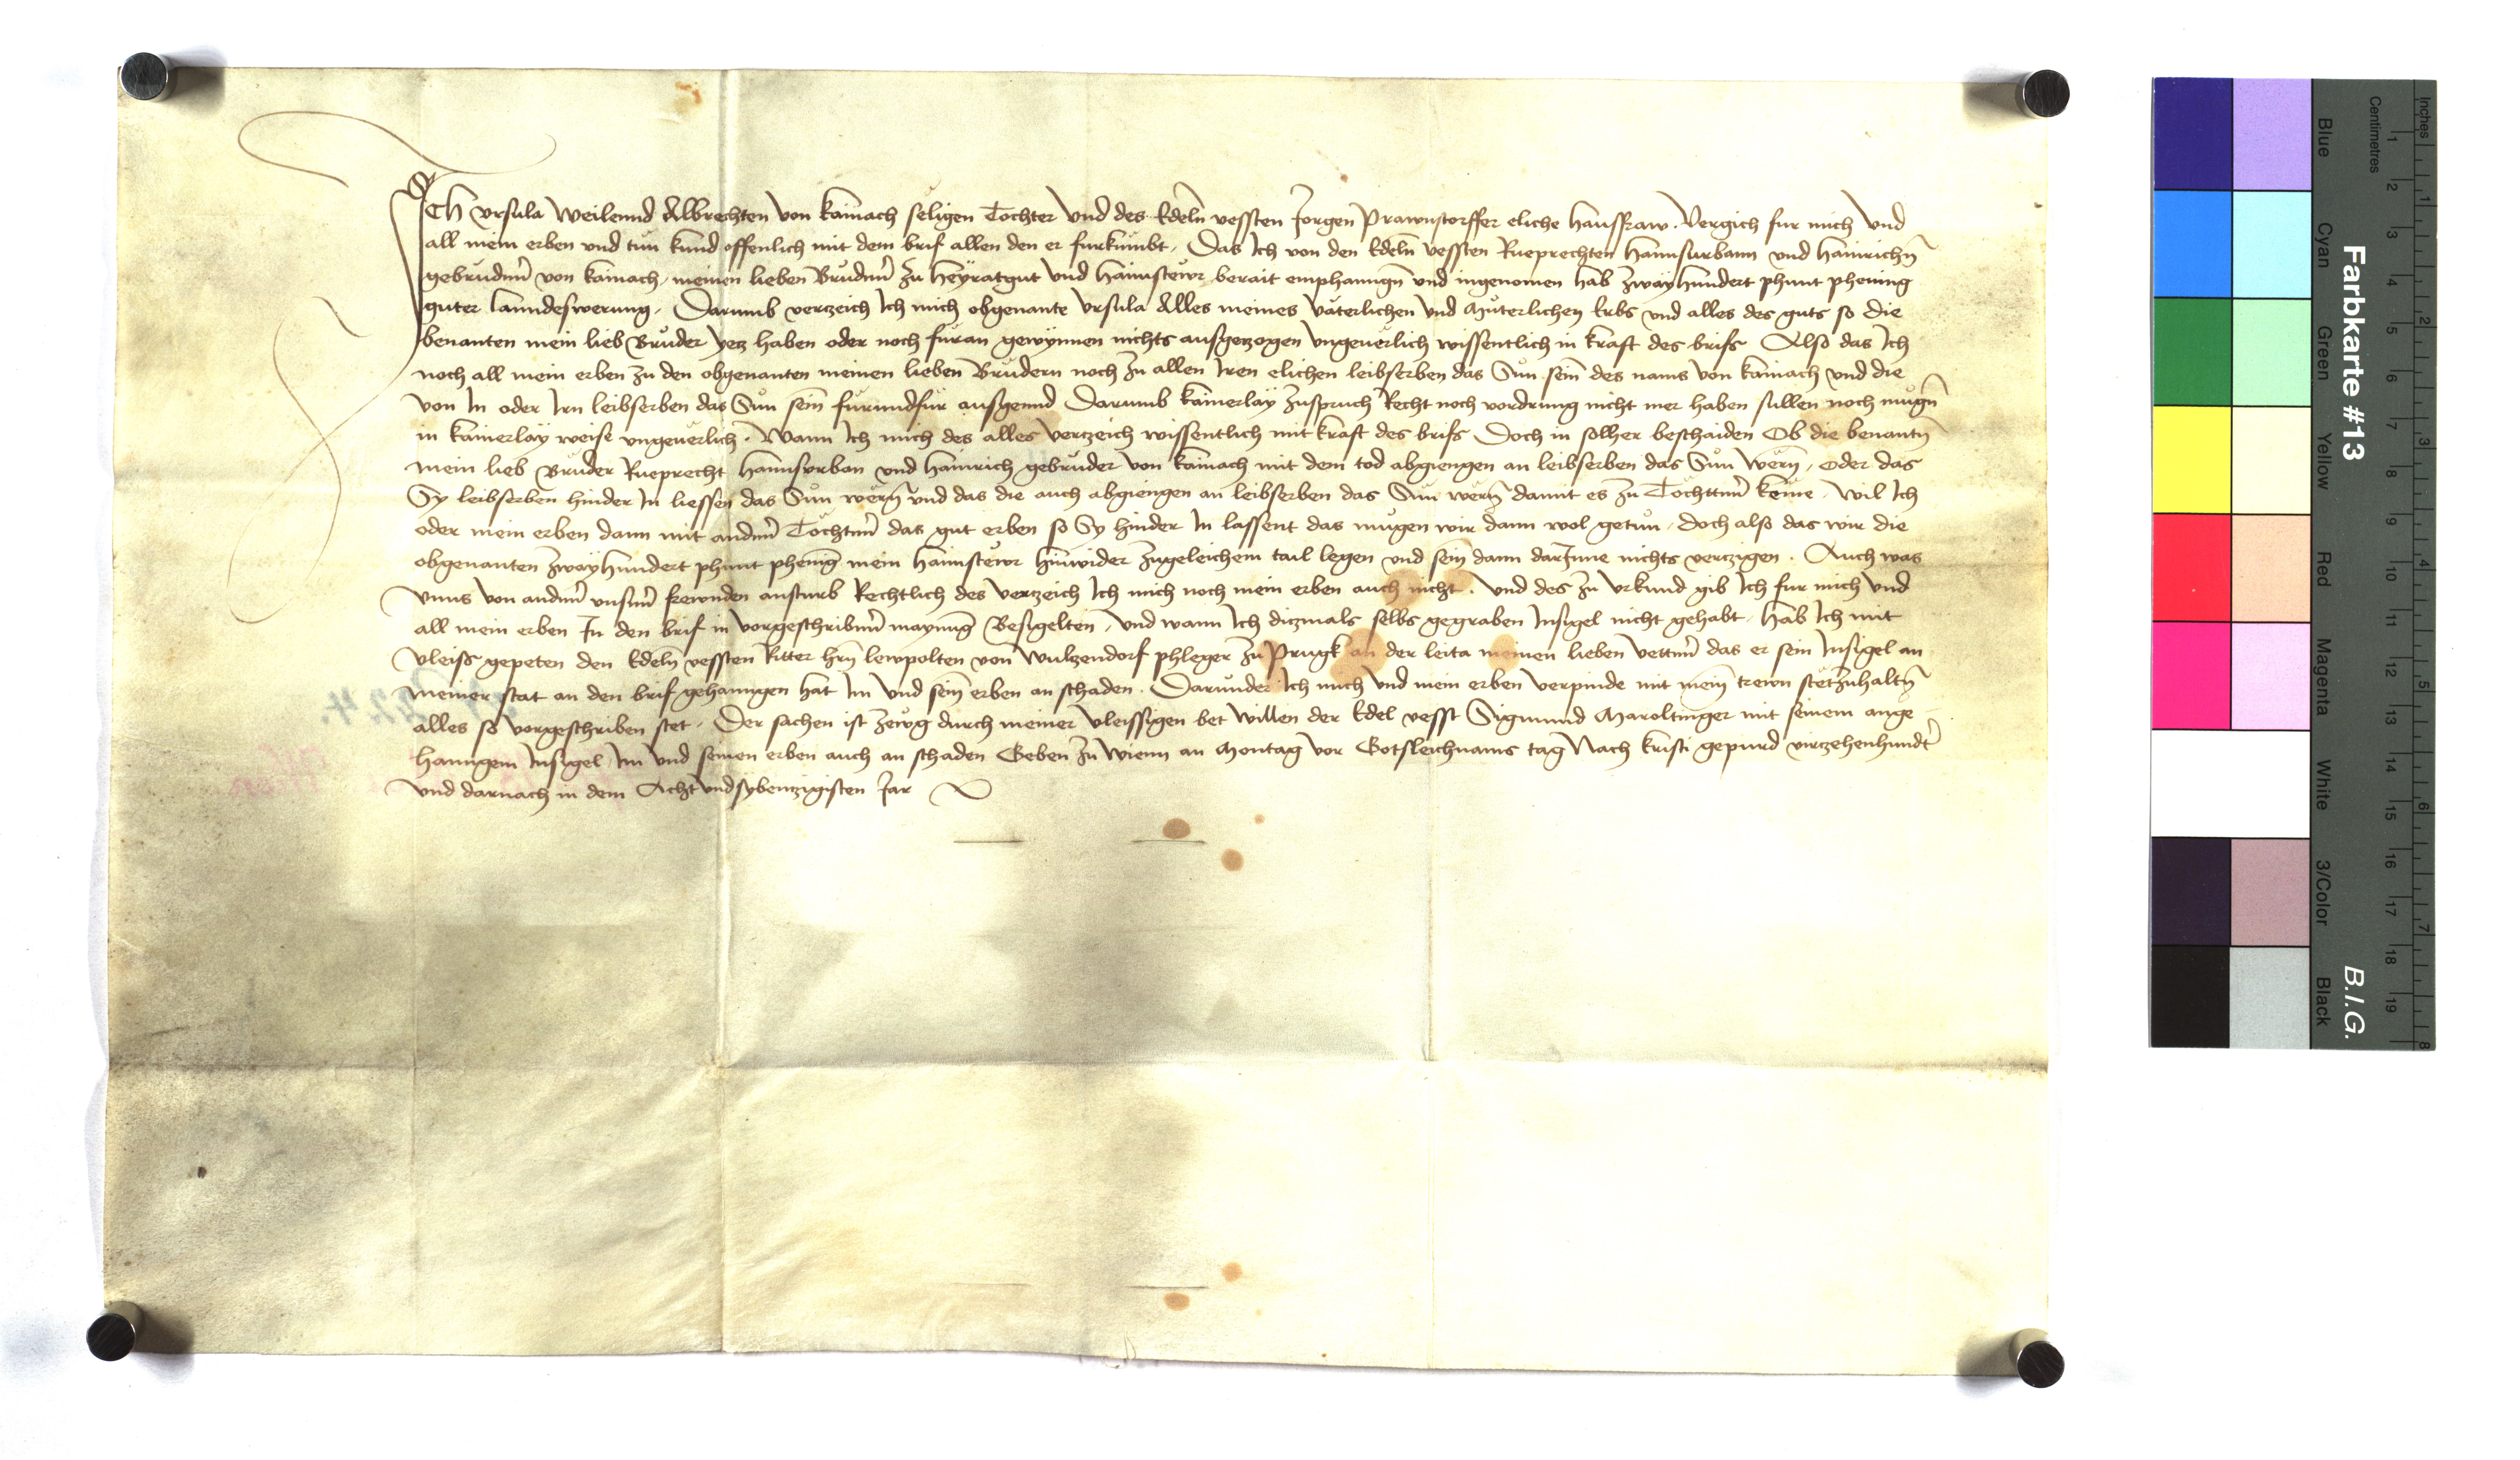 ICH vrsula Weilennd Albrechten von kainach seligen Tochter Vnd des Edeln vessten Jorgen Prawnstorffer eliche hausfraw. Vergich fur mich Vnd
all mein erben vnd tun kund offenlich mit dem brif allen den er furkumbt, Das Ich von den Edeln vessten Rueprechten Hannsurbann vnd Hainrichn̄
gebrudern̄ von kainach, meinen lieben Brudern̄ zu Heyratgut Vnd Haimstewr berait emphanngn̄ vnd ingenomen hab Zwayhundert phunt phening
guter lanndeswerung, Darumb verczeich Ich mich obgenante Vrsula Alles meines vaterlichen Vnd Muterlichen Erbs vnd alles des guts so die
benanten mein lieb Bruder yecz haben oder noch furan gewynnen nichts ausgeczogen Vngeuerlich wissentlich in kraft des brifs Also das Ich
noch all mein erben zu den obgenanten meinen lieben Brudern noch zu allen Iren elichen leibserben das Sun sein̄ des nams von kainach vnd die
Von In oder Irn leibserben das Sun sein̄ furundfur ausgennd Darumb kainerlay zuspruch Recht noch vordrung nicht mer haben sullen noch mugn̄
in kainerlay weise vngeuerlich. Wann Ich mich des alles verczeich wissentlich mit kraft des brifs Doch in solher beschaiden Ob die benantn̄
mein lieb Bruder Rueprecht Hannsvrban vnd Hainrich gebruder von kainach mit dem tod abgiengen an leibserben das Sun wern̄, oder das
Sy leibserben hinder In liessen das Sun wern̄ vnd das die auch abgiengen an leibserben das Sun wern̄ damit es zu Tochttern̄ keme, Wil Ich
oder mein erben dann mit andern̄ Tochtern̄ das gut erben so Sy hinder In lassent das mugen wir dann wol getun, doch also das wir die
obgenanten Zwayhundert phunt phening mein Haimstewr hinwider zugeleichem tail legen vnd sein̄ dann darInne nichts verczigen. Auch was
Vnns von andern̄ vnsern̄ frewnden ansturb Rechtlich des verczeich Ich mich noch mein erben auch nicht. Vnd des zu Vrkund gib Ich fur mich Vnd
all mein erben In den brif in vorgeschribner̄ maynung Besigelten, Vnd wann Ich diczmals selbs gegraben Insigel nicht gehabt, Hab Ich mit
Vleiss gepeten den Edeln̄ vessten Ritter hern̄ lewpolten von Wulczendorf phleger zu Prugk an der leita meinen lieben vettern̄ das er sein Insigel an
meiner stat an den brif gehanngen hat Im Vnd sein̄ erben an schaden. Darunder Ich mich Vnd mein erben verpinde mit mein̄ trewn stetzuhaltn̄
alles so vorgeschriben stet, Der sachen ist zewg durch meiner vleissigen bet willen der Edel vesst Sigmund Maroltinger mit seinem ange
hanngem Insigel Im Vnd seinen erben auch an schaden Geben zu wienn an Montag vor Gotsleichnams tag Nach kristi gepurd virczehenhundt̄
Vnd darnach in dem Acht vndsybenczigisten Jar
Farbkarte #13
B.I.G.
Inches
Centimetres
Blue
Cyan
Green
Yellow
Red
Magenta
White
3/Color
Black
1 2 3 4 5 6 7 8 9 10 11 12 13 14 15 16 17 18 19
1 2 3 4 5 6 7 8